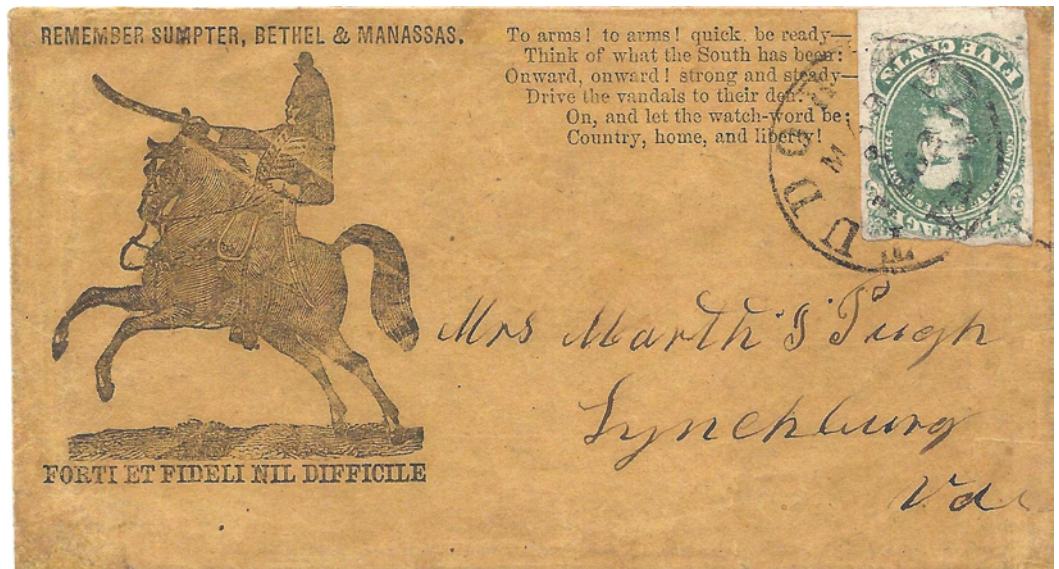 REMEMBER SUMPTER, BETHEL & MANASSAS.
To arms! to arms! quick, be ready—
Think of what the South has been:
Onward, onward! strong and steady—
Drive the vandals to their den.
On, and let the watch-word be:
Country, home, and liberty!
FIVE CENTS
FORTI ET FIDELI NIL DIFFICILE
Mrs Marth S Pugh
Lynchburg
Va